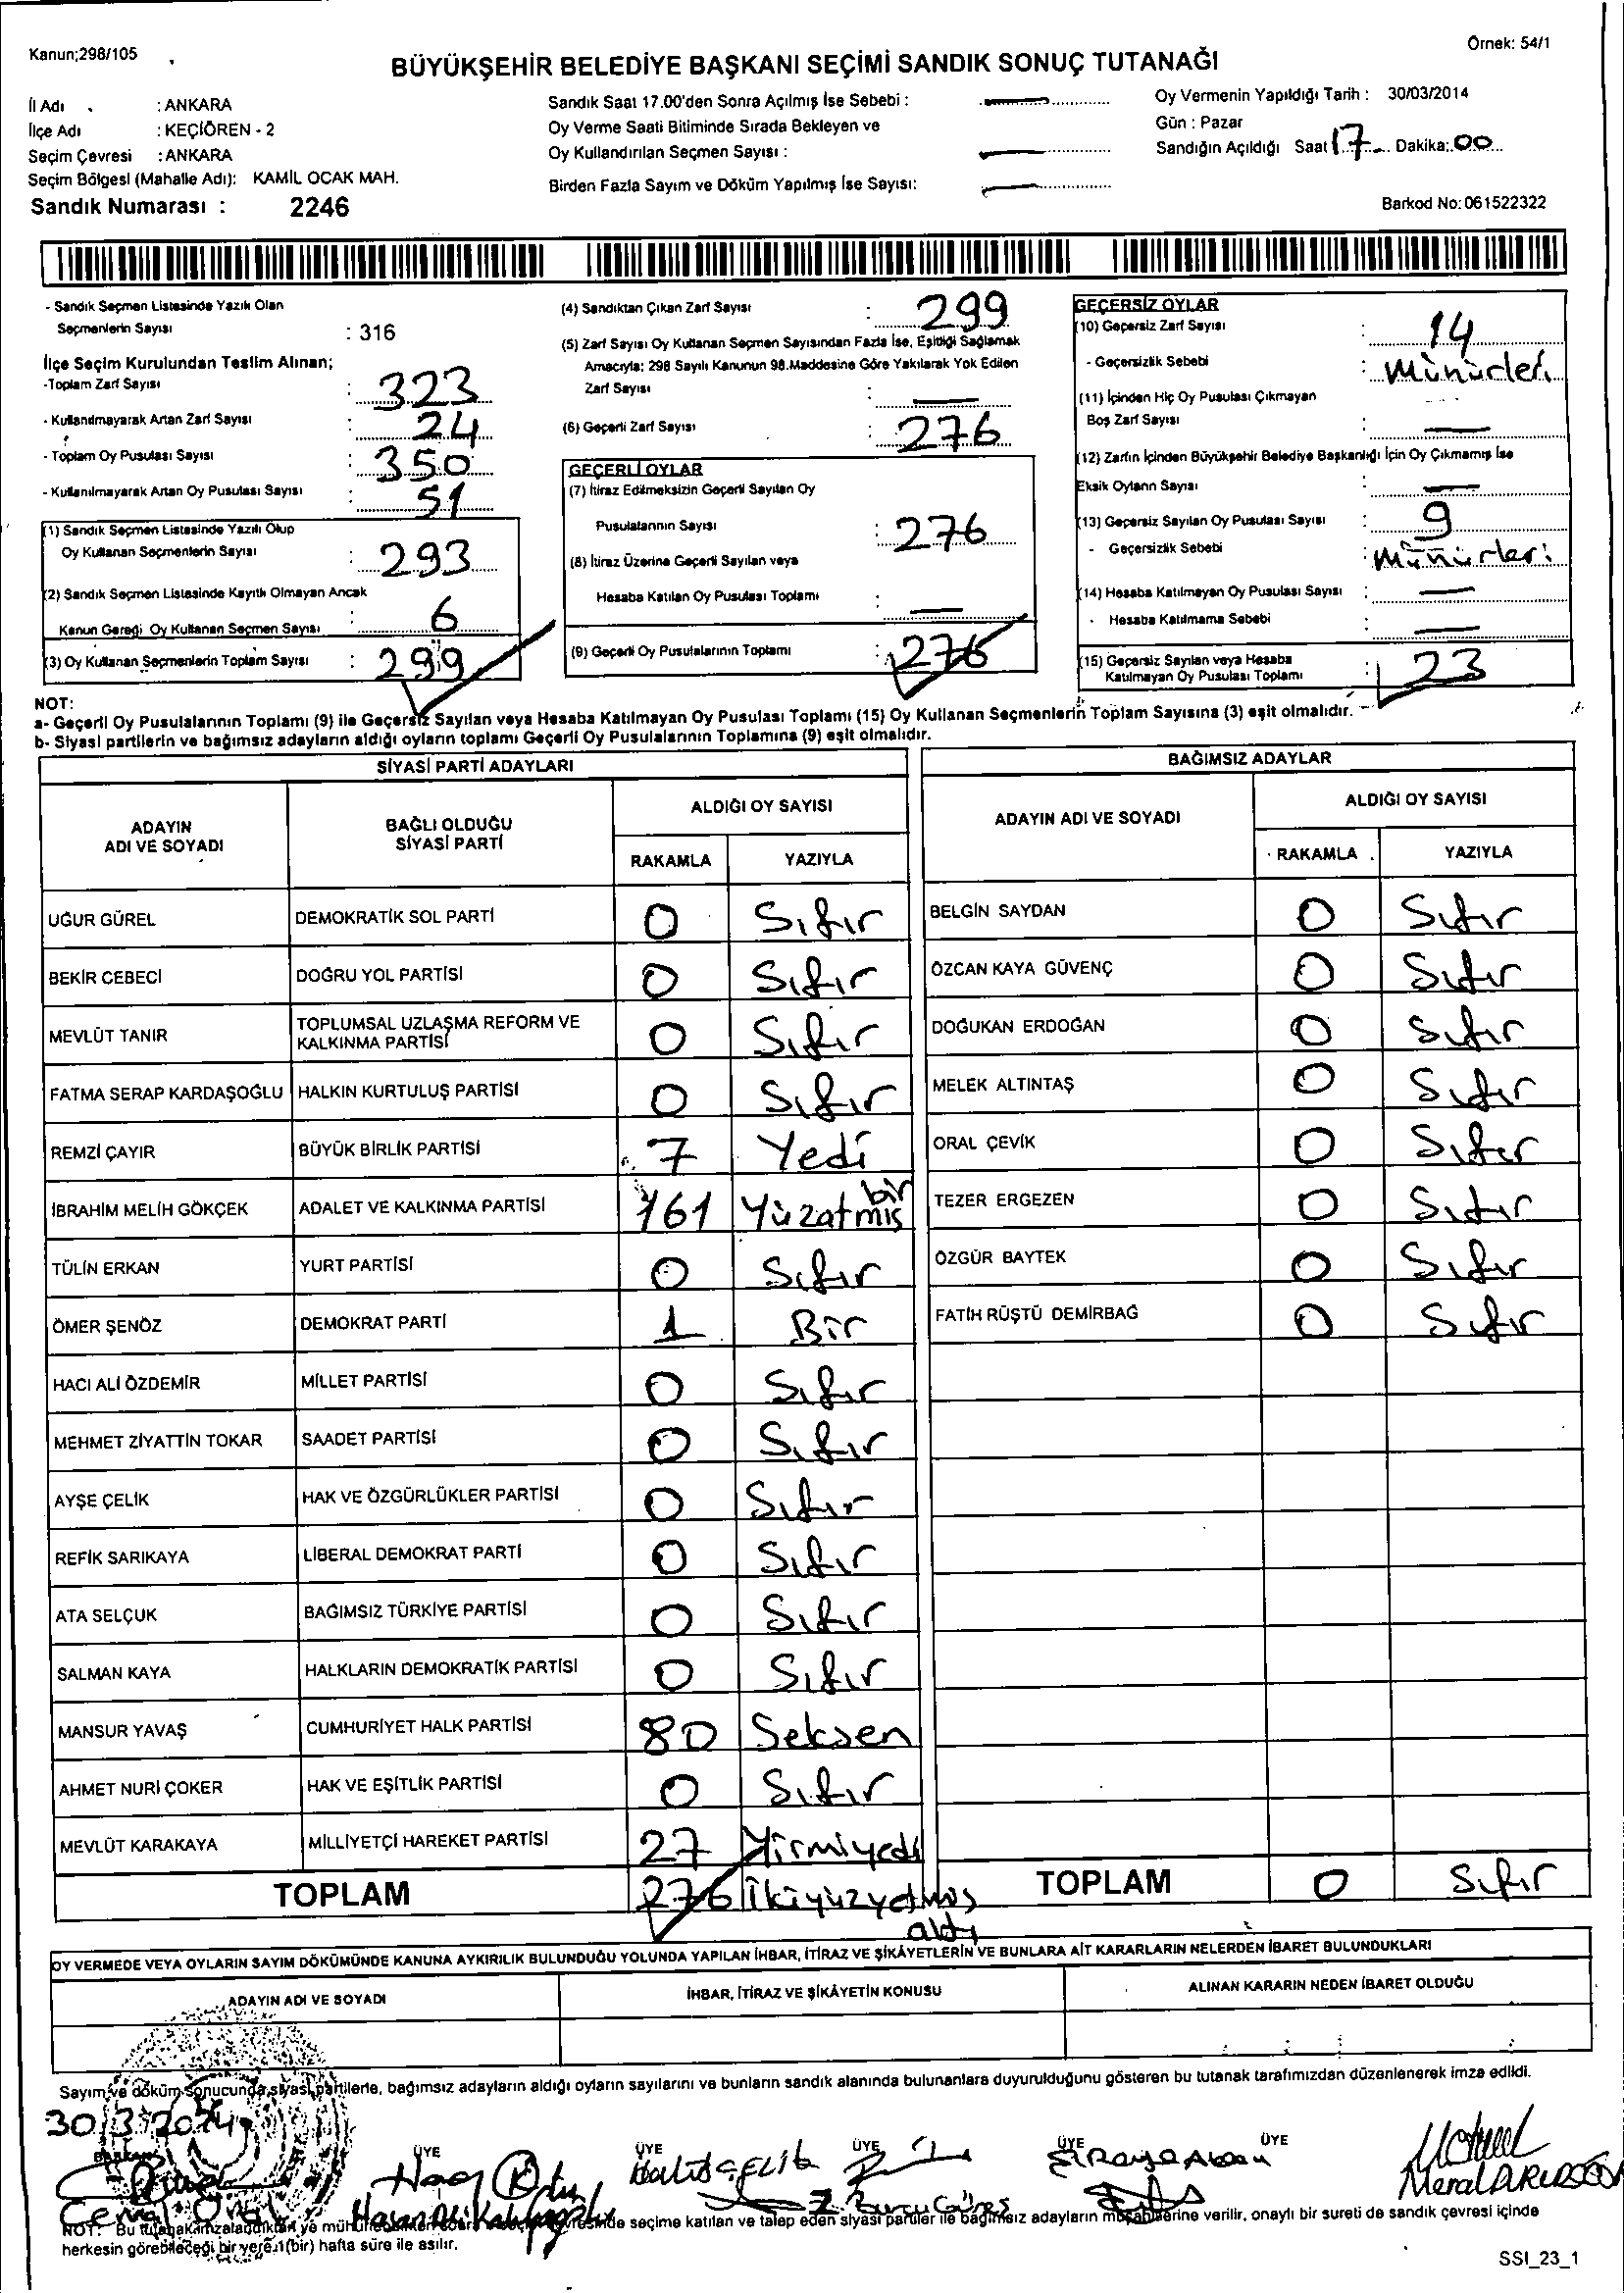 Kanun;298/105
Örnek: 54/1
BÜYÜKŞEHİR BELEDİYE BAŞKANI SEÇİMİ SANDIK SONUÇ TUTANAĞI
İl Adı : ANKARA
İlçe Adı : KEÇİÖREN - 2
Seçim Çevresi : ANKARA
Seçim Bölgesi (Mahalle Adı): KAMİL OCAK MAH.
Sandık Numarası : 2246
Sandık Saat 17.00'den Sonra Açılmış İse Sebebi : —
Oy Verme Saati Bitiminde Sırada Bekleyen ve
Oy Kullandırılan Seçmen Sayısı : —
Birden Fazla Sayım ve Döküm Yapılmış İse Sayısı: —
Oy Vermenin Yapıldığı Tarih : 30/03/2014
Gün : Pazar
Sandığın Açıldığı Saat 17 Dakika: 00
Barkod No: 061522322
- Sandık Seçmen Listesinde Yazılı Olan
Seçmenlerin Sayısı : 316
İlçe Seçim Kurulundan Teslim Alınan;
-Toplam Zarf Sayısı : 323
- Kullanılmayarak Artan Zarf Sayısı : 24
- Toplam Oy Pusulası Sayısı : 350
- Kullanılmayarak Artan Oy Pusulası Sayısı : 51
(1) Sandık Seçmen Listesinde Yazılı Olup
Oy Kullanan Seçmenlerin Sayısı : 293
(2) Sandık Seçmen Listesinde Kayıtlı Olmayan Ancak
Kanun Gereği Oy Kullanan Seçmen Sayısı : 6
(3) Oy Kullanan Seçmenlerin Toplam Sayısı : 299
(4) Sandıktan Çıkan Zarf Sayısı : 299
(5) Zarf Sayısı Oy Kullanan Seçmen Sayısından Fazla İse, Eşitliği Sağlamak
Amacıyla; 298 Sayılı Kanunun 98.Maddesine Göre Yakılarak Yok Edilen
Zarf Sayısı : —
(6) Geçerli Zarf Sayısı : 276
GEÇERLİ OYLAR
(7) İtiraz Edilmeksizin Geçerli Sayılan Oy
Pusulalarının Sayısı : 276
(8) İtiraz Üzerine Geçerli Sayılan veya
Hesaba Katılan Oy Pusulası Toplamı : —
(9) Geçerli Oy Pusulalarının Toplamı : 276
GEÇERSİZ OYLAR
(10) Geçersiz Zarf Sayısı : 14
- Geçersizlik Sebebi : Mühürleri
(11) İçinden Hiç Oy Pusulası Çıkmayan
Boş Zarf Sayısı : —
(12) Zarfın İçinden Büyükşehir Belediye Başkanlığı İçin Oy Çıkmamış İse
Eksik Oyların Sayısı : —
(13) Geçersiz Sayılan Oy Pusulası Sayısı : 9
- Geçersizlik Sebebi : Mühürleri
(14) Hesaba Katılmayan Oy Pusulası Sayısı : —
- Hesaba Katılmama Sebebi : —
(15) Geçersiz Sayılan veya Hesaba
Katılmayan Oy Pusulası Toplamı : 23
NOT:
a- Geçerli Oy Pusulalarının Toplamı (9) ile Geçersiz Sayılan veya Hesaba Katılmayan Oy Pusulası Toplamı (15) Oy Kullanan Seçmenlerin Toplam Sayısına (3) eşit olmalıdır.
b- Siyasi partilerin ve bağımsız adayların aldığı oyların toplamı Geçerli Oy Pusulalarının Toplamına (9) eşit olmalıdır.
SİYASİ PARTİ ADAYLARI
ADAYIN ADI VE SOYADI
BAĞLI OLDUĞU SİYASİ PARTİ
ALDIĞI OY SAYISI
RAKAMLA YAZIYLA
UĞUR GÜREL DEMOKRATİK SOL PARTİ 0 Sıfır
BEKİR CEBECİ DOĞRU YOL PARTİSİ 0 Sıfır
MEVLÜT TANIR TOPLUMSAL UZLAŞMA REFORM VE KALKINMA PARTİSİ 0 Sıfır
FATMA SERAP KARDAŞOĞLU HALKIN KURTULUŞ PARTİSİ 0 Sıfır
REMZİ ÇAYIR BÜYÜK BİRLİK PARTİSİ 7 Yedi
İBRAHİM MELİH GÖKÇEK ADALET VE KALKINMA PARTİSİ 161 Yüzatmış bir
TÜLİN ERKAN YURT PARTİSİ 0 Sıfır
ÖMER ŞENÖZ DEMOKRAT PARTİ 1 Bir
HACI ALİ ÖZDEMİR MİLLET PARTİSİ 0 Sıfır
MEHMET ZİYATTİN TOKAR SAADET PARTİSİ 0 Sıfır
AYŞE ÇELİK HAK VE ÖZGÜRLÜKLER PARTİSİ 0 Sıfır
REFİK SARIKAYA LİBERAL DEMOKRAT PARTİ 0 Sıfır
ATA SELÇUK BAĞIMSIZ TÜRKİYE PARTİSİ 0 Sıfır
SALMAN KAYA HALKLARIN DEMOKRATİK PARTİSİ 0 Sıfır
MANSUR YAVAŞ CUMHURİYET HALK PARTİSİ 80 Seksen
AHMET NURİ ÇOKER HAK VE EŞİTLİK PARTİSİ 0 Sıfır
MEVLÜT KARAKAYA MİLLİYETÇİ HAREKET PARTİSİ 27 Yirmiyedi
TOPLAM 276 İkiyüzyetmiş altı
BAĞIMSIZ ADAYLAR
ADAYIN ADI VE SOYADI
ALDIĞI OY SAYISI
RAKAMLA YAZIYLA
BELGİN SAYDAN 0 Sıfır
ÖZCAN KAYA GÜVENÇ 0 Sıfır
DOĞUKAN ERDOĞAN 0 Sıfır
MELEK ALTINTAŞ 0 Sıfır
ORAL ÇEVİK 0 Sıfır
TEZER ERGEZEN 0 Sıfır
ÖZGÜR BAYTEK 0 Sıfır
FATİH RÜŞTÜ DEMİRBAĞ 0 Sıfır
TOPLAM 0 Sıfır
OY VERMEDE VEYA OYLARIN SAYIM DÖKÜMÜNDE KANUNA AYKIRILIK BULUNDUĞU YOLUNDA YAPILAN İHBAR, İTİRAZ VE ŞİKÂYETLERİN VE BUNLARA AİT KARARLARIN NELERDEN İBARET BULUNDUKLARI
ADAYIN ADI VE SOYADI
İHBAR, İTİRAZ VE ŞİKÂYETİN KONUSU
ALINAN KARARIN NEDEN İBARET OLDUĞU
Sayım ve döküm sonucunda siyasi partilerle, bağımsız adayların aldığı oyların sayılarını ve bunların sandık alanında bulunanlara duyurulduğunu gösteren bu tutanak tarafımızdan düzenlenerek imza edildi.
30.3.2014
Başkan ÜYE ÜYE ÜYE ÜYE ÜYE
Halit ÇELİK
Burcu Güneş
Meral
NOT: Bu tutanak imzalandıktan ve seçime katılan ve talep eden siyasi partiler ile bağımsız adayların müşahitlerine verilir, onaylı bir sureti de sandık çevresi içinde
herkesin görebileceği bir yere 1(bir) hafta süre ile asılır.
SSI_23_1